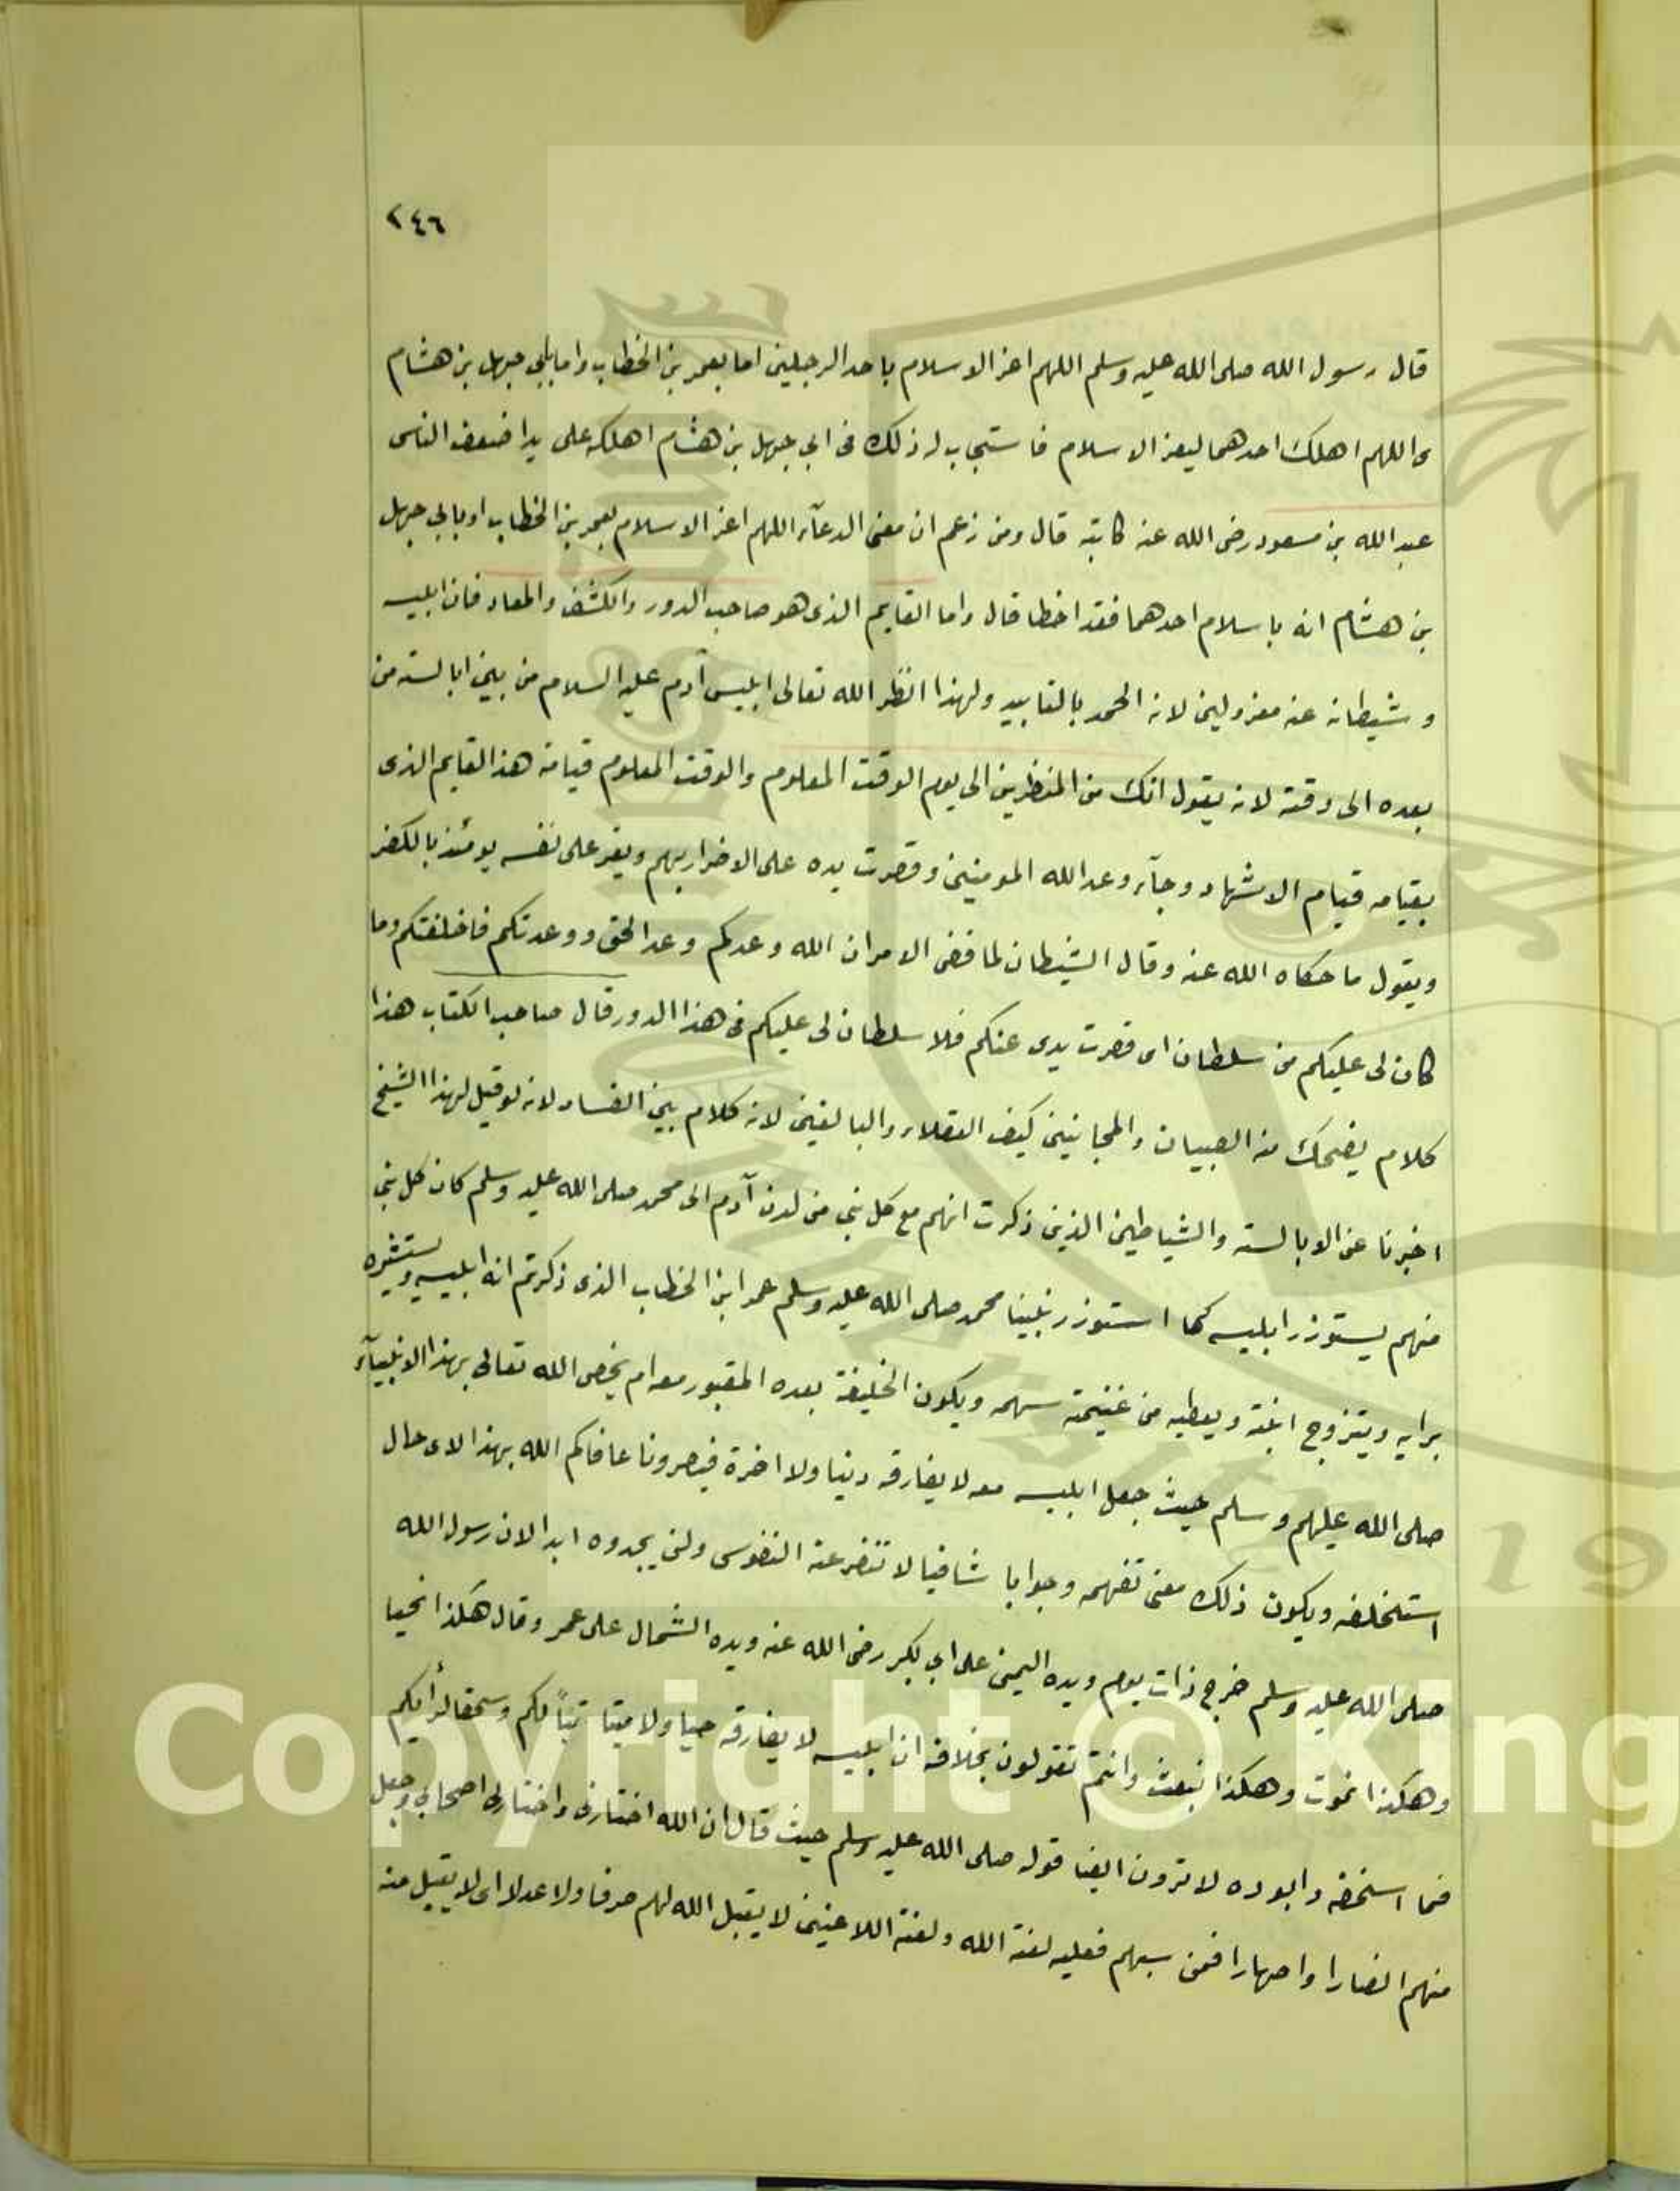 ٢٤٦
قال رسول الله صلى الله عليه وسلم اللهم اعز الاسلام باحد الرجلين اما بعمر بن الخطاب واما بابي جهل بن هشام
اللهم اهلك احدهما ليعز الاسلام فاستجاب له ذلك في ابي جهل بن هشام اهلكه على يد اضعف الناس
عبد الله بن مسعود رضي الله عنه قال ومن زعم ان معنى الدعآء اللهم اعز الاسلام بعمر بن الخطاب او بابي جهل
بن هشام انه باسلام احدهما فقد اخطا قال واما القايم الذي هو صاحب الدور والكشف والمعاد فان ابليسه
وشيطانه عنه معزولين لانه بالتاييد ولهذا انظر الله تعالى ابليس آدم عليه السلام من بين ابالسة من
بعده الى وقته لانه يقول انك من المنظرين الى يوم الوقت المعلوم والوقت المعلوم قيامة هذا القايم الذي
بقيامه قيام الاشهاد وجآء وعد الله المومنين وقصرت يده على الاضرار بهم ويقر على نفسه يومئذ بالكفر
ويقول ما حكاه الله عنه وقال الشيطان لما قضي الامر ان الله وعدكم وعد الحق ووعدتكم فاخلفتكم وما
كان لي عليكم من سلطان اي قصرت يدي عنكم فلا سلطان لي عليكم في هذا الدور قال صاحب الكتاب هذا
كلام يضحك منه الصبيان والمجانين كيف العقلاء والبالغين لانه كلام بين الفساد لانه لو قيل لهذا الشيخ
اخبرنا عن الابالسة والشياطين الذين ذكرت انهم مع كل نبي من لدن آدم الى محمد صلى الله عليه وسلم كان كل نبي
منهم يستوزر ابليسه كما استوزر نبينا محمد صلى الله عليه وسلم عمر ابن الخطاب الذي ذكرتم انه ابليسه ويستشيره
برايه ويتزوج ابنته ويعطيه من غنيمته سهمه ويكون الخليفة بعده المقبور معه ام يخص الله تعالى بهذا الانبيآء
صلى الله عليهم وسلم حيث جعل ابليسه معه لا يفارقه دنيا ولا اخرة فبصرونا عافاكم الله بهذا لاي حال
استخلفه ويكون ذلك معنى نفهمه وجوابا شافيا لا تنفر عنه النفوس ولن يجدوه ابدا لان رسول الله
صلى الله عليه وسلم خرج ذات يوم ويده اليمين على ابي بكر رضي الله عنه ويده الشمال على عمر وقال هكذا نحيا
وهكذا نموت وهكذا نبعث وانتم تقولون بخلافه ان ابليسه لا يفارقه حيا ولا ميتا تبًا لكم وسحقا لرأيكم
فما اسخفه لا ترون ايضا قوله صلى الله عليه وسلم حيث قال ان الله اختارني واختار لي اصحابي وجعل
منهم انصارا واصهارا فمن سبهم فعليه لعنة الله ولعنة اللاعنين لا يقبل الله لهم صرفا ولا عدلا اي لا يقبل منه
Copyright © King